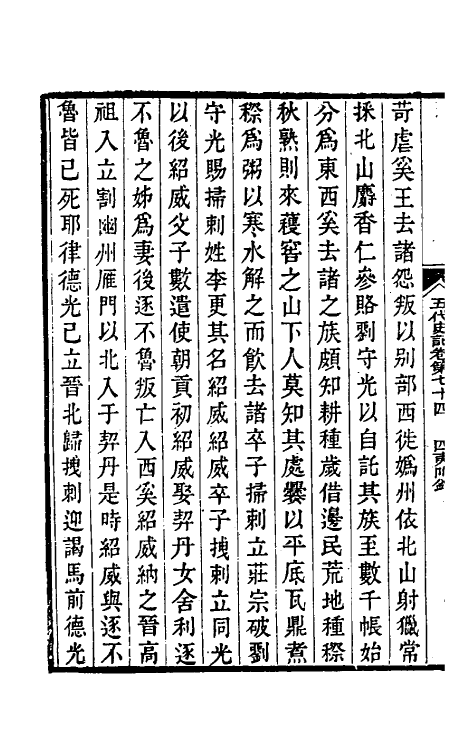 苛虐奚王去諸怨叛以別部西徙媯州依北山射獵常
採北山麝香仁參賂劉守光以自託其族至數千帳始
分爲東西奚去諸之族頗知耕種歲借邊民荒地種穄
秋熟則來穫窖之山下人莫知其處爨以平底瓦鼎煮
穄爲粥以寒水解之而飲去諸卒子掃剌立莊宗破劉
守光賜掃剌姓李更其名紹威紹威卒子拽剌立同光
以後紹威父子數遣使朝貢初紹威娶契丹女舍利逐
不魯之姊爲妻後逐不魯叛亡入西奚紹威納之晉高
祖入立割幽州雁門以北入于契丹是時紹威與逐不
魯皆已死耶律德光已立晉北歸拽剌迎謁馬前德光
五代史記卷第七十四 四夷附錄